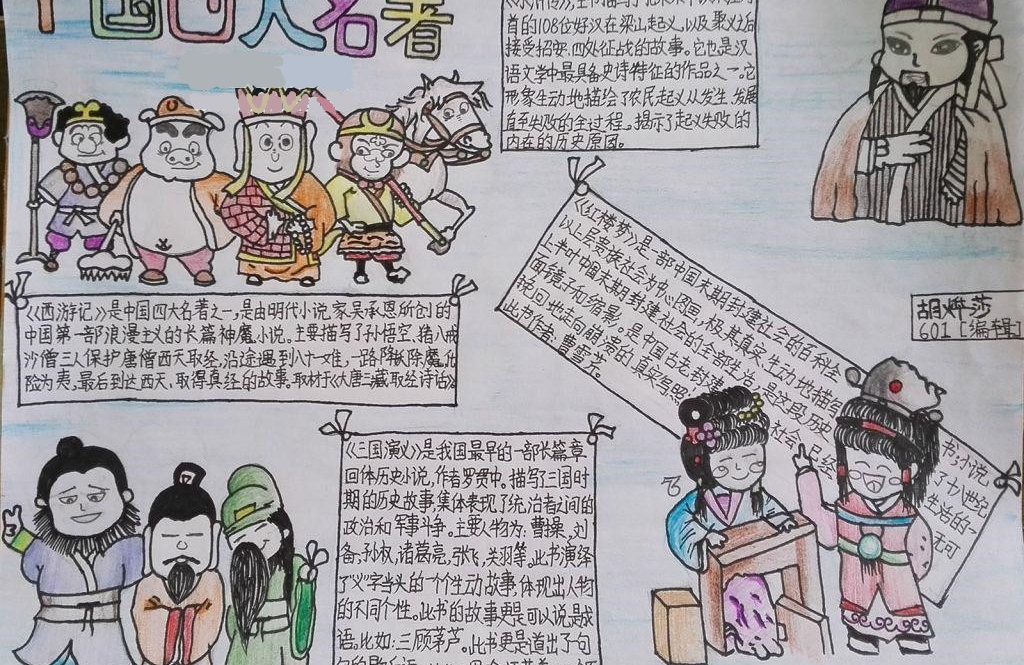 中国四大名著
首的108位好汉在梁山起义,以及聚义后
接受招安、四处征战的故事。它也是汉
语文学中最具备史诗特征的作品之一。它
形象生动地描绘了农民起义从发生、发展
直至失败的全过程,揭示了起义失败的
内在的历史原因。
《西游记》是中国四大名著之一,是由明代小说家吴承恩所创的
中国第一部浪漫主义的长篇神魔小说。主要描写了孙悟空、猪八戒
沙僧三人保护唐僧西天取经,沿途遇到八十一难,一路降妖除魔,化
险为夷,最后到达西天,取得真经的故事。取材于《大唐三藏取经诗话》
《红楼梦》是一部中国末期封建社会的百科全
书,小说
以上层贵族社会为中心图画,极其真实、生动地描绘
了十八世纪
上半叶中国末期封建社会的全部生活,是这段历史
生活的一
面镜子和缩影。是中国古老封建社会已经
无可
挽回地走向崩溃的真实写照。
此书作者:曹雪芹。
胡烨莎
601[编辑]
《三国演义》是我国最早的一部长篇章
回体历史小说,作者罗贯中,描写三国时
期的历史故事,集体表现了统治者之间的
政治和军事斗争。主要人物为:曹操、刘
备、孙权、诸葛亮、张飞、关羽等。此书演绎
了义字当头的一个个生动故事,体现出人物
的不同个性。此书的故事更是可以说是成
语。比如:三顾茅芦。此书更是道出了句